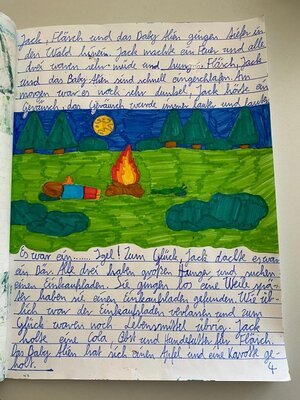 Jack, Fläsch und das Baby Alien gingen tiefer in
den Wald hinein. Jack machte ein Feuer und alle
drei waren sehr müde und hung... Fläsch, Jack
und das Baby Alien sind schnell eingeschlafen. Am
morgen war es noch sehr dunkel, Jack hörte ein
Geräusch, das Geräusch wurde immer lauter und lauter.
Es war ein....... Igel! Zum Glück, Jack dachte es war
ein Bär. Alle drei haben großen Hunger und suchen
einen Einkaufsladen. Sie gingen los eine Weile spä-
ter haben sie einen Einkaufsladen gefunden. Wie üb-
lich war der Einkaufsladen verlassen und zum
Glück waren noch Lebensmittel übrig. Jack
holte eine Cola Obst und Hundefutter für Fläsch.
Das Baby Alien hat sich einen Apfel und eine Karotte ge-
holt.
4